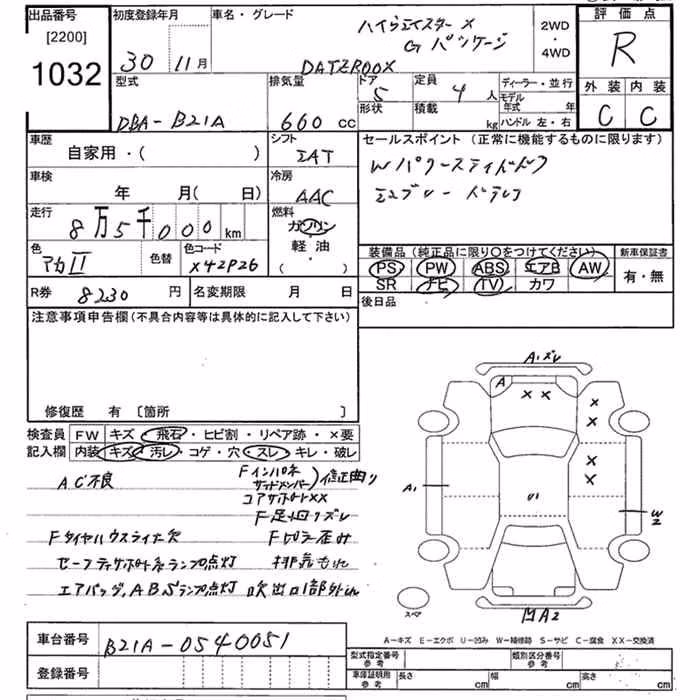 出品番号
[2200]
1032
初度登録年月
30 11月
車名・グレード
ハイウェイスター X
Gパッケージ
DAYZROOX
2WD
・
4WD
評価点
R
外装 内装
C C
型式
DBA-B21A
排気量
660 cc
ドア
5
定員
4 人
形状
積載
kg
ディーラー・並行
モデル年式 年
ハンドル 左・右
車歴
自家用・( )
シフト
IAT
セールスポイント (正常に機能するものに限ります)
Wパワースライドドア
エマブレー ドラレコ
車検
年 月( 日)
冷房
AAC
走行
8万5千000km
燃料
ガソリン
軽油
・( )
色
アカII
色替
色コード
X42P26
装備品 (純正品に限り〇をつけてください)
PS PW ABS エアB AW
SR ナビ TV カワ
新車保証書
有・無
R券 8230円
名変期限 月 日
後日品
注意事項申告欄 (不具合内容等は具体的に記入して下さい)
修復歴 有 〔箇所 〕
検査員
記入欄
FW キズ・飛石・ヒビ割・リペア跡・×要
内装 キズ・汚レ・コゲ・穴・スレ・キレ・破レ
AC不良
Fインパネ
サイドメンバー
修正曲り
コアサポートXX
F足回りズレ
Fタイヤハウスライナ欠
セーフティサポートランプ点灯
排気もれ
エアバッグ、ABSランプ点灯
吹出口1部外れ
A1ズレ
A
× ×
×
×
×
×
A1
U1
W2
スペア
A2
A-キズ E-エクボ U-凹み W-補修跡 S-サビ C-腐食 XX-交換済
車台番号
B21A-0540051
登録番号
型式指定番号
参考
類別区分番号
参考
車庫証明用
参考
長さ cm
幅 cm
高さ cm